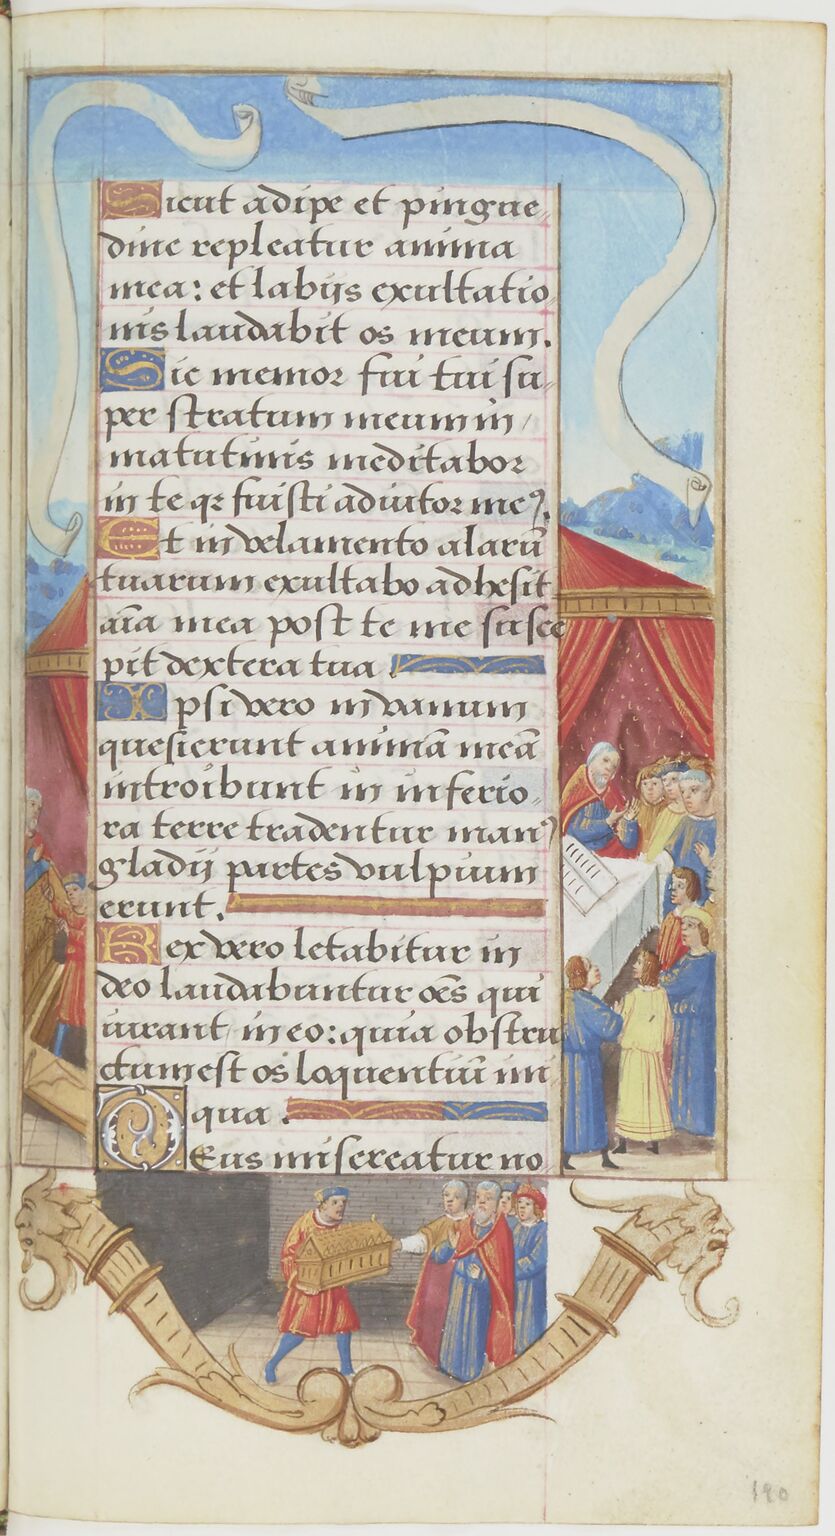 Sicut adipe et pingue,,
dine repleatur anima
mea: et labijs exultatio
nis laudabit os meum.
Sic memor fui tui su,,
per stratum meum in
matutinis meditabor
in te qꝛ fuisti adiutor meꝰ.
Et in velamento alarū
tuarum exultabo adhesit
aīa mea post te me susce
pit dextera tua.
Ipsi vero in vanum
quesierunt animā meā
introibunt in inferio,,
ra terre tradentur manꝰ
gladij partes vulpium
erunt.
Rex vero letabitur in
deo laudabuntur oēs qui
iurant in eo: quia obstru
ctum est os loquentiū ini
qua.
Deus misereatur no
190